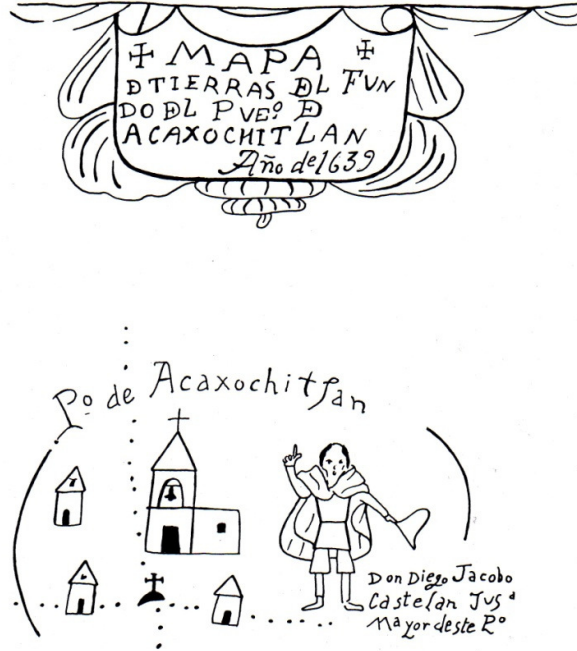 ✠ MAPA ✠
DTIERRAS DL FUN
DO DL PVEº D
ACAXOCHITLAN
Año de 1639
Pº de Acaxochitlan
Don Diego Jacobo
Castelan Jusª
Mayor deste Pº